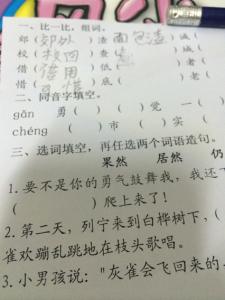 一、比一比,组词。
郊( 郊外 ) 渣( 面包渣 ) 诚(
校( 校园 ) 查( ) 城(
借( 借用 ) 低( ) 者(
惜( 可惜 ) 底( ) 老(
二、同音字填空。
gǎn 勇( ) ( )觉 一(
chéng ( )市 ( )实 (
三、选词填空,再任选两个词语造句。
果然 居然 仍
1.要不是你的勇气鼓舞我,我还
( )爬上来了!
2.第二天,列宁来到白桦树下,(
雀欢蹦乱跳地在枝头歌唱。
3.小男孩说:"灰雀会飞回来的.